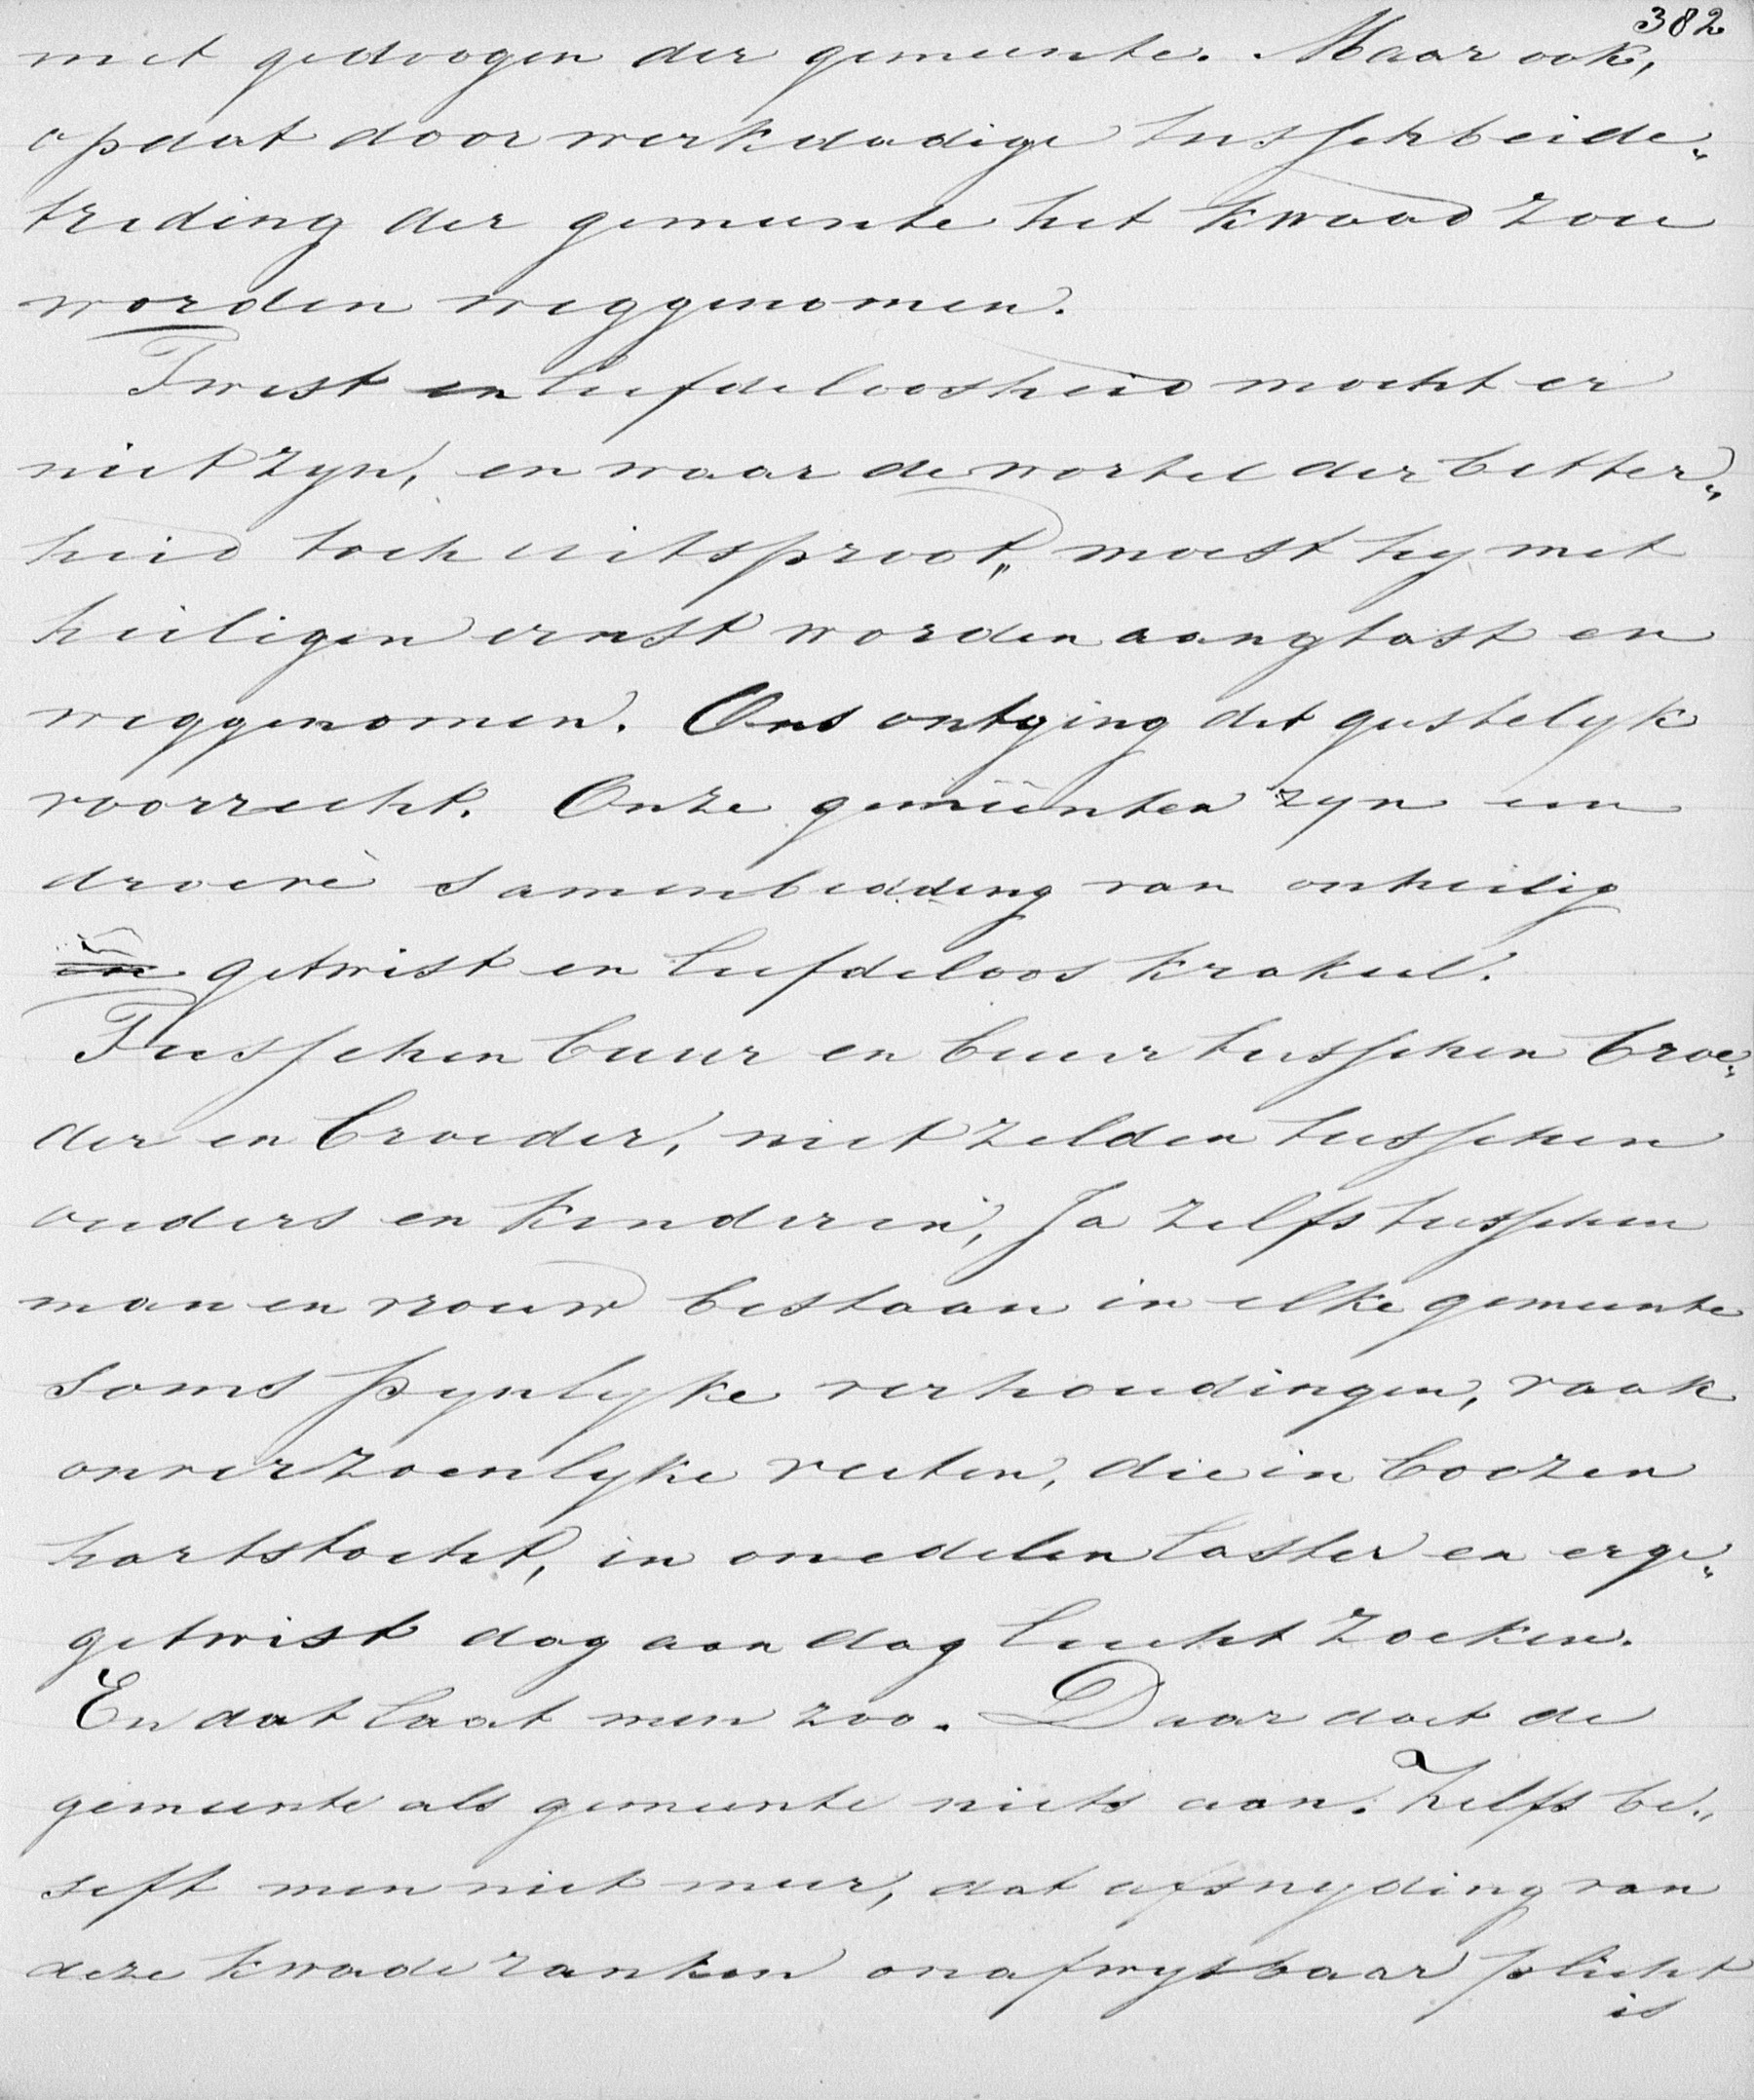 382
met gedoogen der gemeente. Maar ook,
opdat door werkdadige tusschbeide„
treding der gemeente het kwaad zou
worden weggenomen.
Twist en liefdeloosheid mocht er
niet zyn, en waar de wortel der bitter„
heid toch uitsproot„ moest hy met
heiligen ernst worden aangtast en
weggenomen. Ons ontging dit geestelyk
voorrecht. Onze gemeenten zyn een
droeve samenbedding van onheilig
getwist en liefdeloos krakeel.
Tusschen buur en buur tusschen broe„
der en broeder, niet zelden tusschen
ouders en kinderen, Ja zelfs tusschen
man en vrouw bestaan in elke gemeente
soms pynlyke verhoudingen, vaak
onverzoenlyke veeten, die in boozen
hartstocht, in onedelen laster en erge„
getwist dag aan dag lucht zoeken.
En dat laat men zoo. Daar doet de
gemeente als gemeente niets aan. Zelfs be„
seft men niet meer, dat afsnyding van
deze kwade ranken onafwysbaar plicht
is